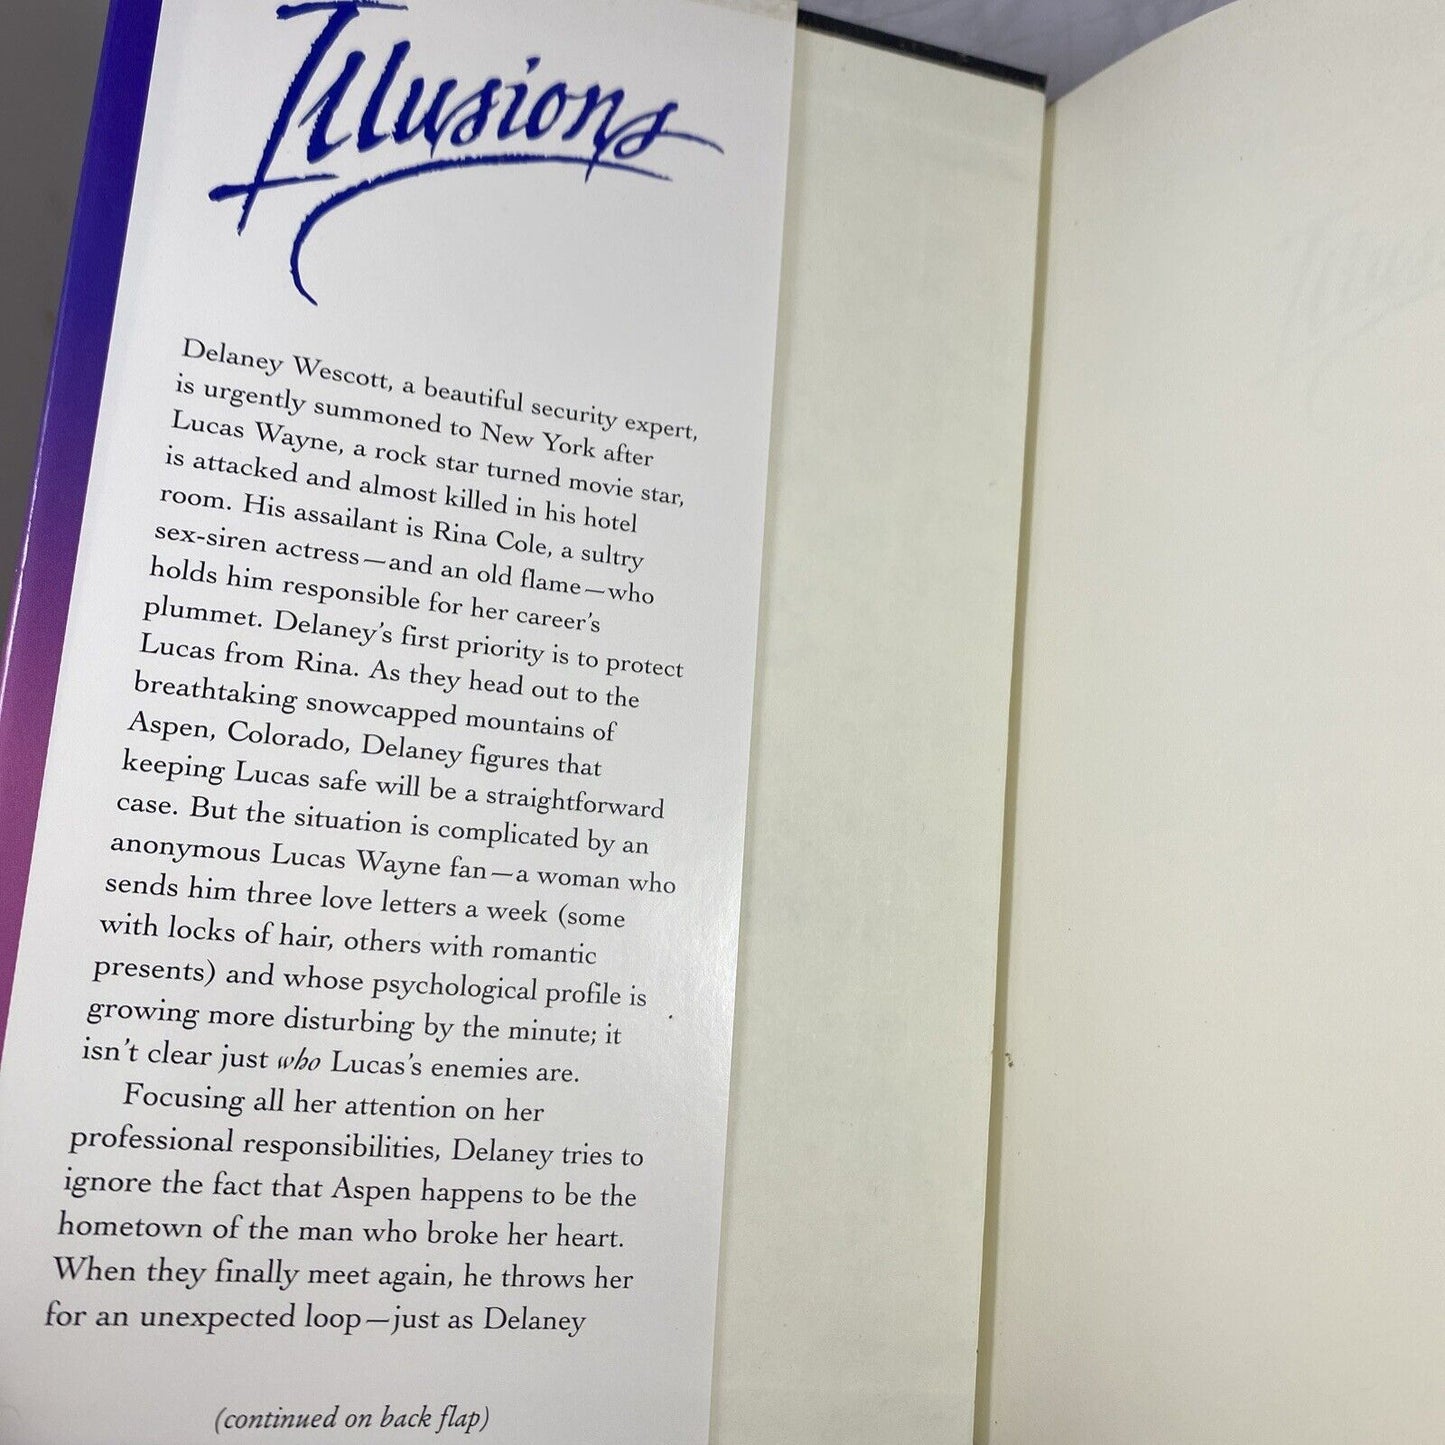 Illusions
Delaney Wescott, a beautiful security expert,
is urgently summoned to New York after
Lucas Wayne, a rock star turned movie star,
is attacked and almost killed in his hotel
room. His assailant is Rina Cole, a sultry
sex-siren actress—and an old flame—who
holds him responsible for her career's
plummet. Delaney's first priority is to protect
Lucas from Rina. As they head out to the
breathtaking snowcapped mountains of
Aspen, Colorado, Delaney figures that
keeping Lucas safe will be a straightforward
case. But the situation is complicated by an
anonymous Lucas Wayne fan—a woman who
sends him three love letters a week (some
with locks of hair, others with romantic
presents) and whose psychological profile is
growing more disturbing by the minute; it
isn't clear just who Lucas's enemies are.
Focusing all her attention on her
professional responsibilities, Delaney tries to
ignore the fact that Aspen happens to be the
hometown of the man who broke her heart.
When they finally meet again, he throws her
for an unexpected loop—just as Delaney
(continued on back flap)